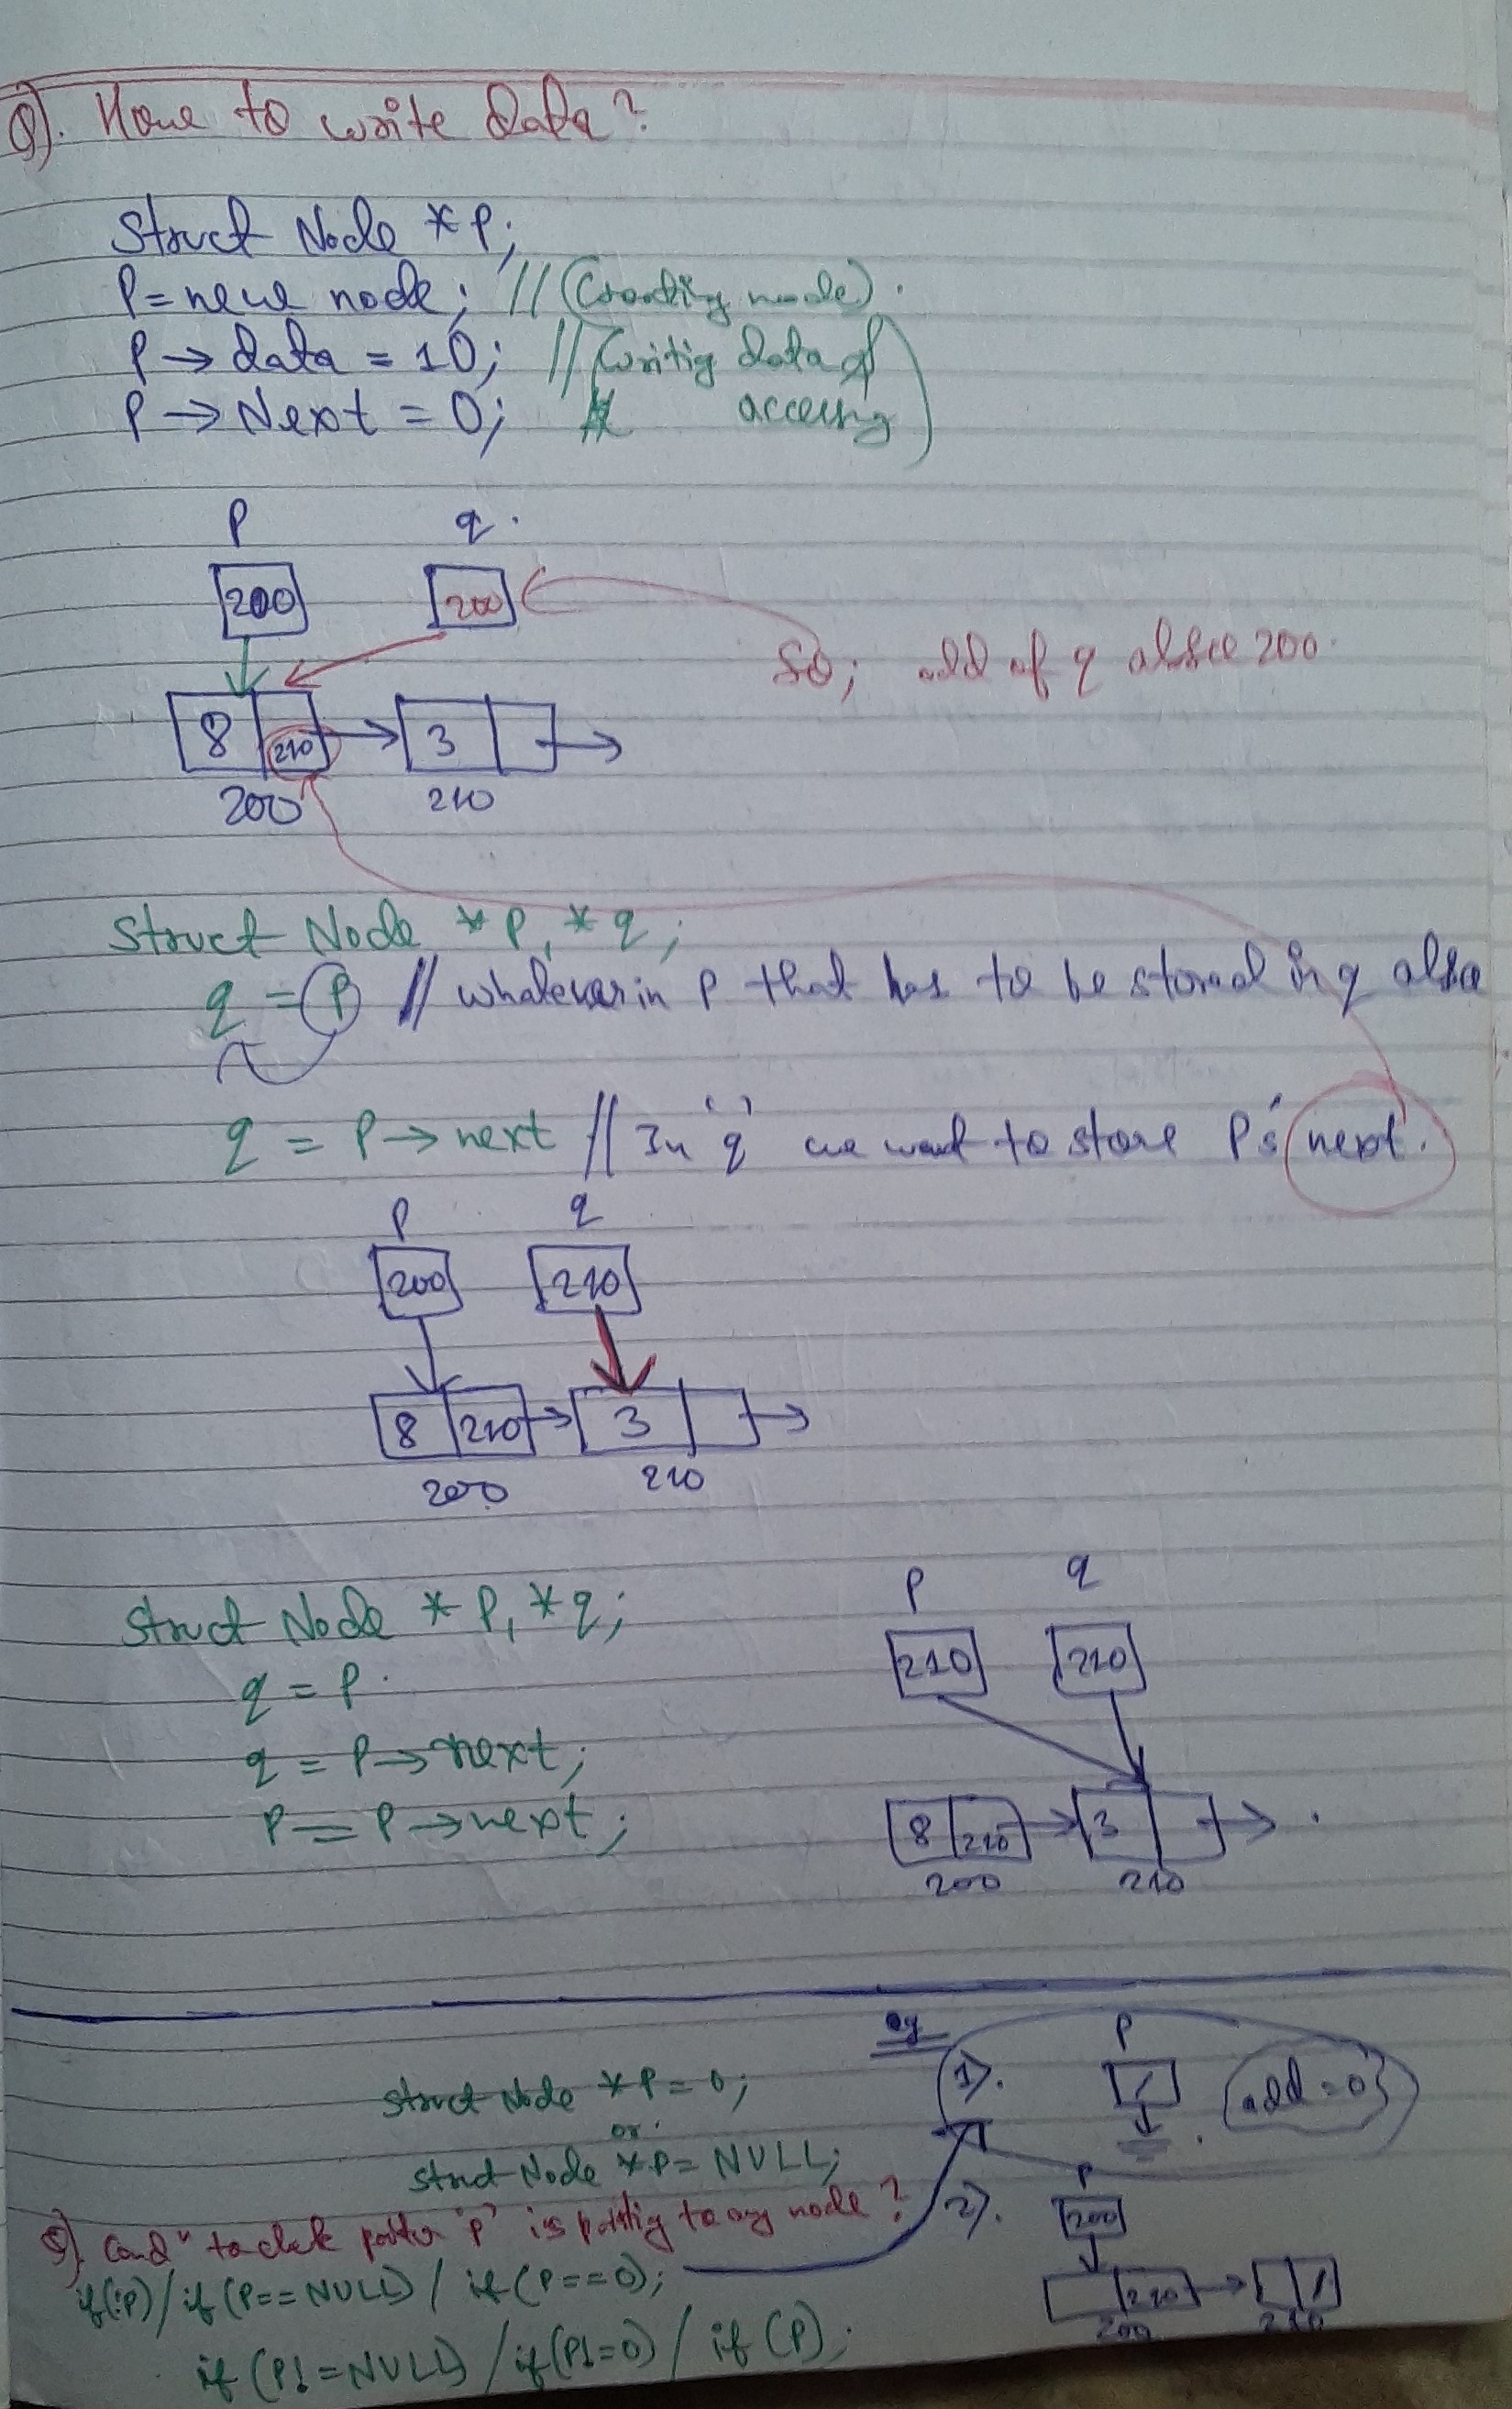 Q). How to write data?
Struct Node *P;
P = new node; // (Creating node).
P → data = 10; // (Writig data of
P → Next = 0; accessing)
P q.
200 200
So; add of q also 200.
8 210 3
200 210
Struct Node *P, *q;
q = P // whatever in P that has to be stored in q also
q = P → next // In 'q' we want to store P's next.
P q
200 210
8 210 3
200 210
Struct Node *P, *q;
q = P.
q = P → next;
P = P → next;
P q
210 210
8 210 3
200 210
eg
Struct Node *P = 0;
or
Struct Node *P = NULL;
1). P
add = 0
2). P
200
210
200 210
Q). Cond" to check pointer 'P' is pointig to any node?
if(!P) / if(P==NULL) / if(P==0);
if(P!=NULL) / if(P!=0) / if(P);